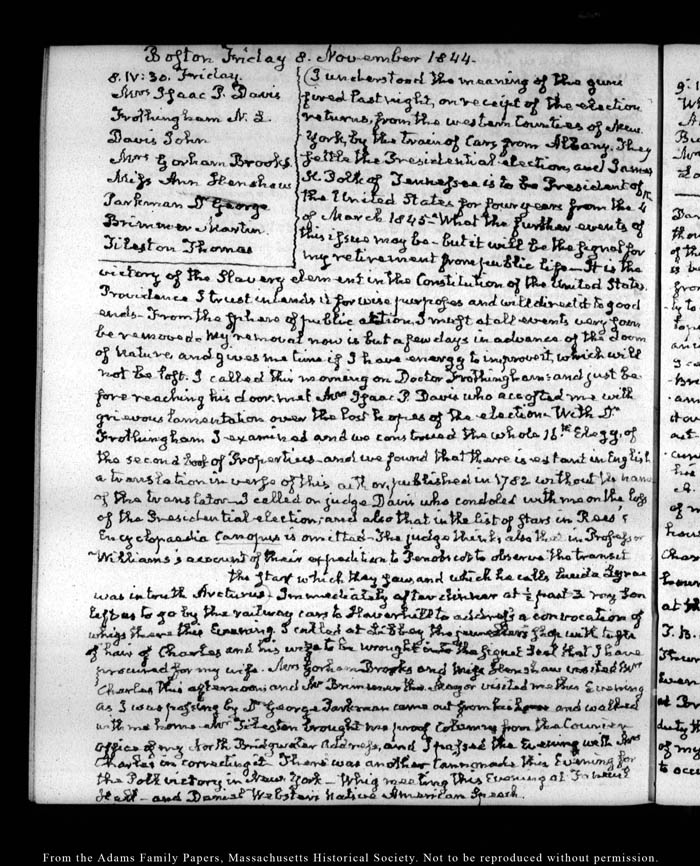 Boston Friday 8. November 1844.
8. IV:30. Friday.
Mrs Isaac P. Davis
Frothingham N. L.
Davis John
Mrs Gorham Brooks
Miss Ann Henshaw
Parkman Dr George
Brimmer Martin
Tileston Thomas
I understood the meaning of the guns
fired last night, on receipt of the election
returns, from the western Counties of New
York, by the train of Cars from Albany. They
settle the Presidential election, and James
K. Polk of Tennessee is to be President of
the United States for four years from the 4th
of March 1845 - What the further events of
this issue may be - but it will be the signal for
my retirement from public life - It is the
victory of the Slavery element in the Constitution of the United States.
Providence I trust intends it for wise purposes and will direct it to good
ends - From the sphere of public action, I must at all events very soon
be removed. My removal now is but a few days in advance of the doom
of Nature, and gives me time if I have energy to improve it, which will
not be lost. I called this morning on Doctor Frothingham: and just be
fore reaching his door, met Mrs Isaac P. Davis who accosted me with
grievous lamentation over the lost hopes of the election. With Dr
Frothingham I examined and we construed the whole 16th Elegy, of
the second book of Propertius - and we found that there is extant in English
a translation in verse of this author, published in 1782 without the name
of the translator - I called on judge Davis who condoled with me on the loss
of the Presidential election; and also that in the list of stars in Rees's
Encyclopaedia Canopus is omitted - The judge thinks also that in Professor
Williams's account of their expedition to Penobscot to observe the transit
the star which they saw, and which he calls Lucida Lyrae
was in truth Arcturus - Immediately after dinner at ½ past 3 my Son
left us to go by the railway cars to Haverhill to address a convocation of
whigs there this Evening. I called at Libbey the jewellers shop with
of hair of Charles and his wife to be wrought into the signet Seal that I have
procured for my wife. Mrs Gorham Brooks and Miss Henshaw visited Mrs
Charles this afternoon and Mr Brimmer the Mayor visited me this Evening
As I was passing by Dr George Parkman came out from his house and walked
with me home. Mr Tileston brought me proof Columns from the Courier
office of my North Bridgwater Address, and I passed the Evening with Mrs
Charles in correcting it - There was another cannonade this Evening for
the Polk victory in New York - Whig meeting this Evening at Faneuil
Hall - and Daniel Webster's Native American Speech.
From the Adams Family Papers, Massachusetts Historical Society. Not to be reproduced without permission.